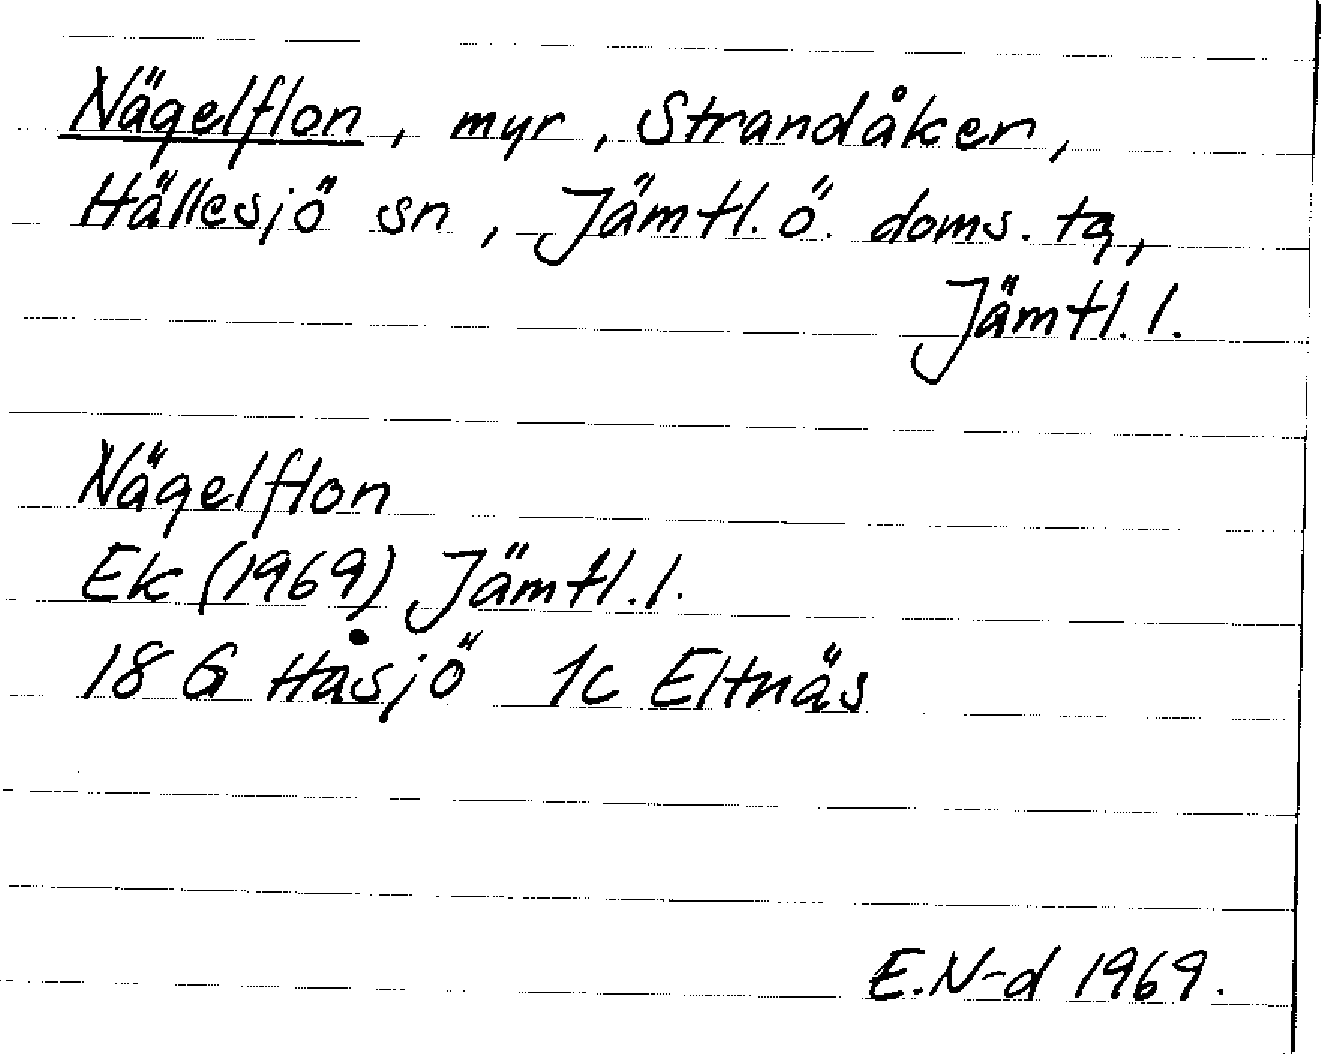 Nägelflon, myr, Strandåker,
Hällesjö sn, Jämtl. ö. doms. tg,
Jämtl. l.
Nägelflon
Ek (1969) Jämtl. l.
18 G Håsjö 1c Eltnäs
E.N-d 1969.